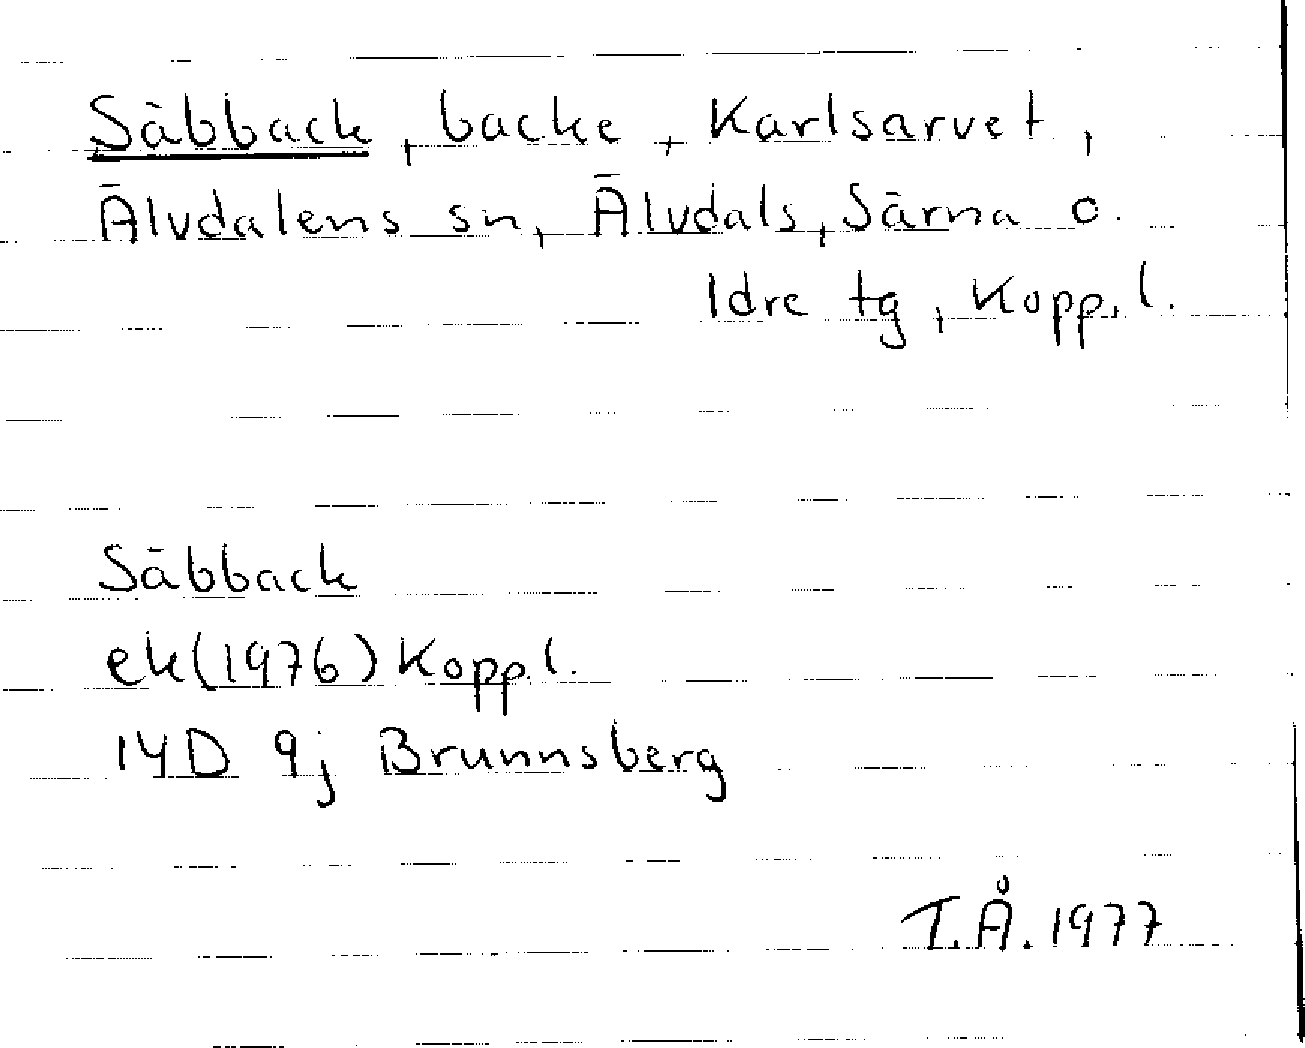 Säbback, backe, Karlsarvet,
Älvdalens sn, Älvdals, Särna o.
Idre tg, Kopp.l.
Säbback
ek(1976) Kopp.l.
14D 9j Brunnsberg
T.Å. 1977